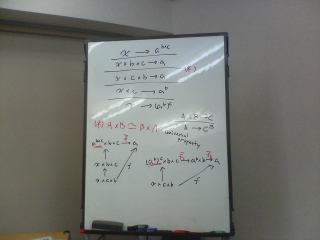 x → a^{b×c}
x × b × c → a
x × c × b → a (※)
x × c → a^b
x → (a^b)^c
(※) A × B ≃ B × A
A × B → C
A → C^B
universal property
a^{b×c} × b × c → a
x × b × c
x × c × b
f
(a^b)^c × c × b → a^b × b → a
x × c × b
f